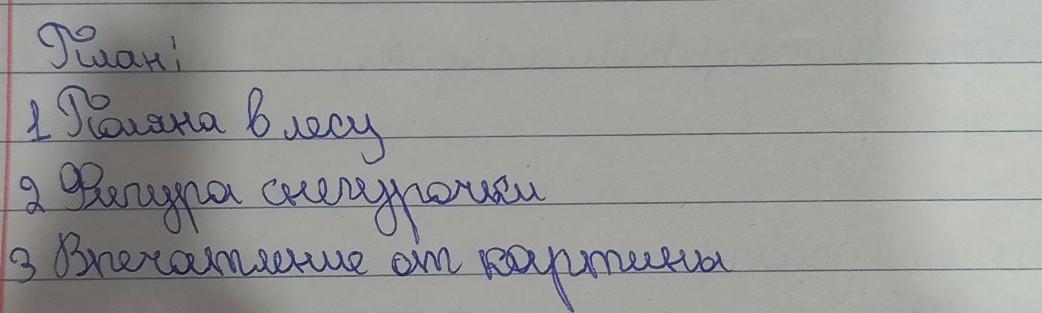 План:
1 Поляна в лесу
2 Фигура снегурочки
3 Впечатление от картины